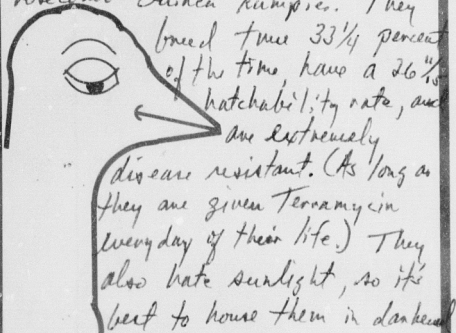 Rumpies. They
breed true 33 1/4 percent
of the time, have a 26 11/15
hatchability rate, and
are extremely
disease resistant. (As long as
they are given Terramycin
everyday of their life.) They
also hate sunlight, so it's
best to house them in darkened